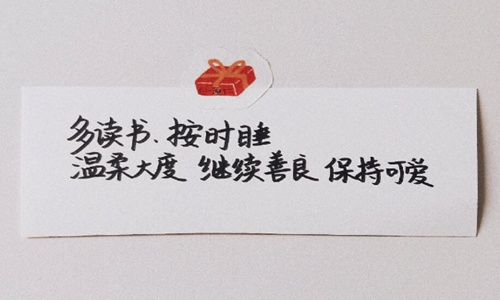 多读书、按时睡
温柔大度 继续善良 保持可爱